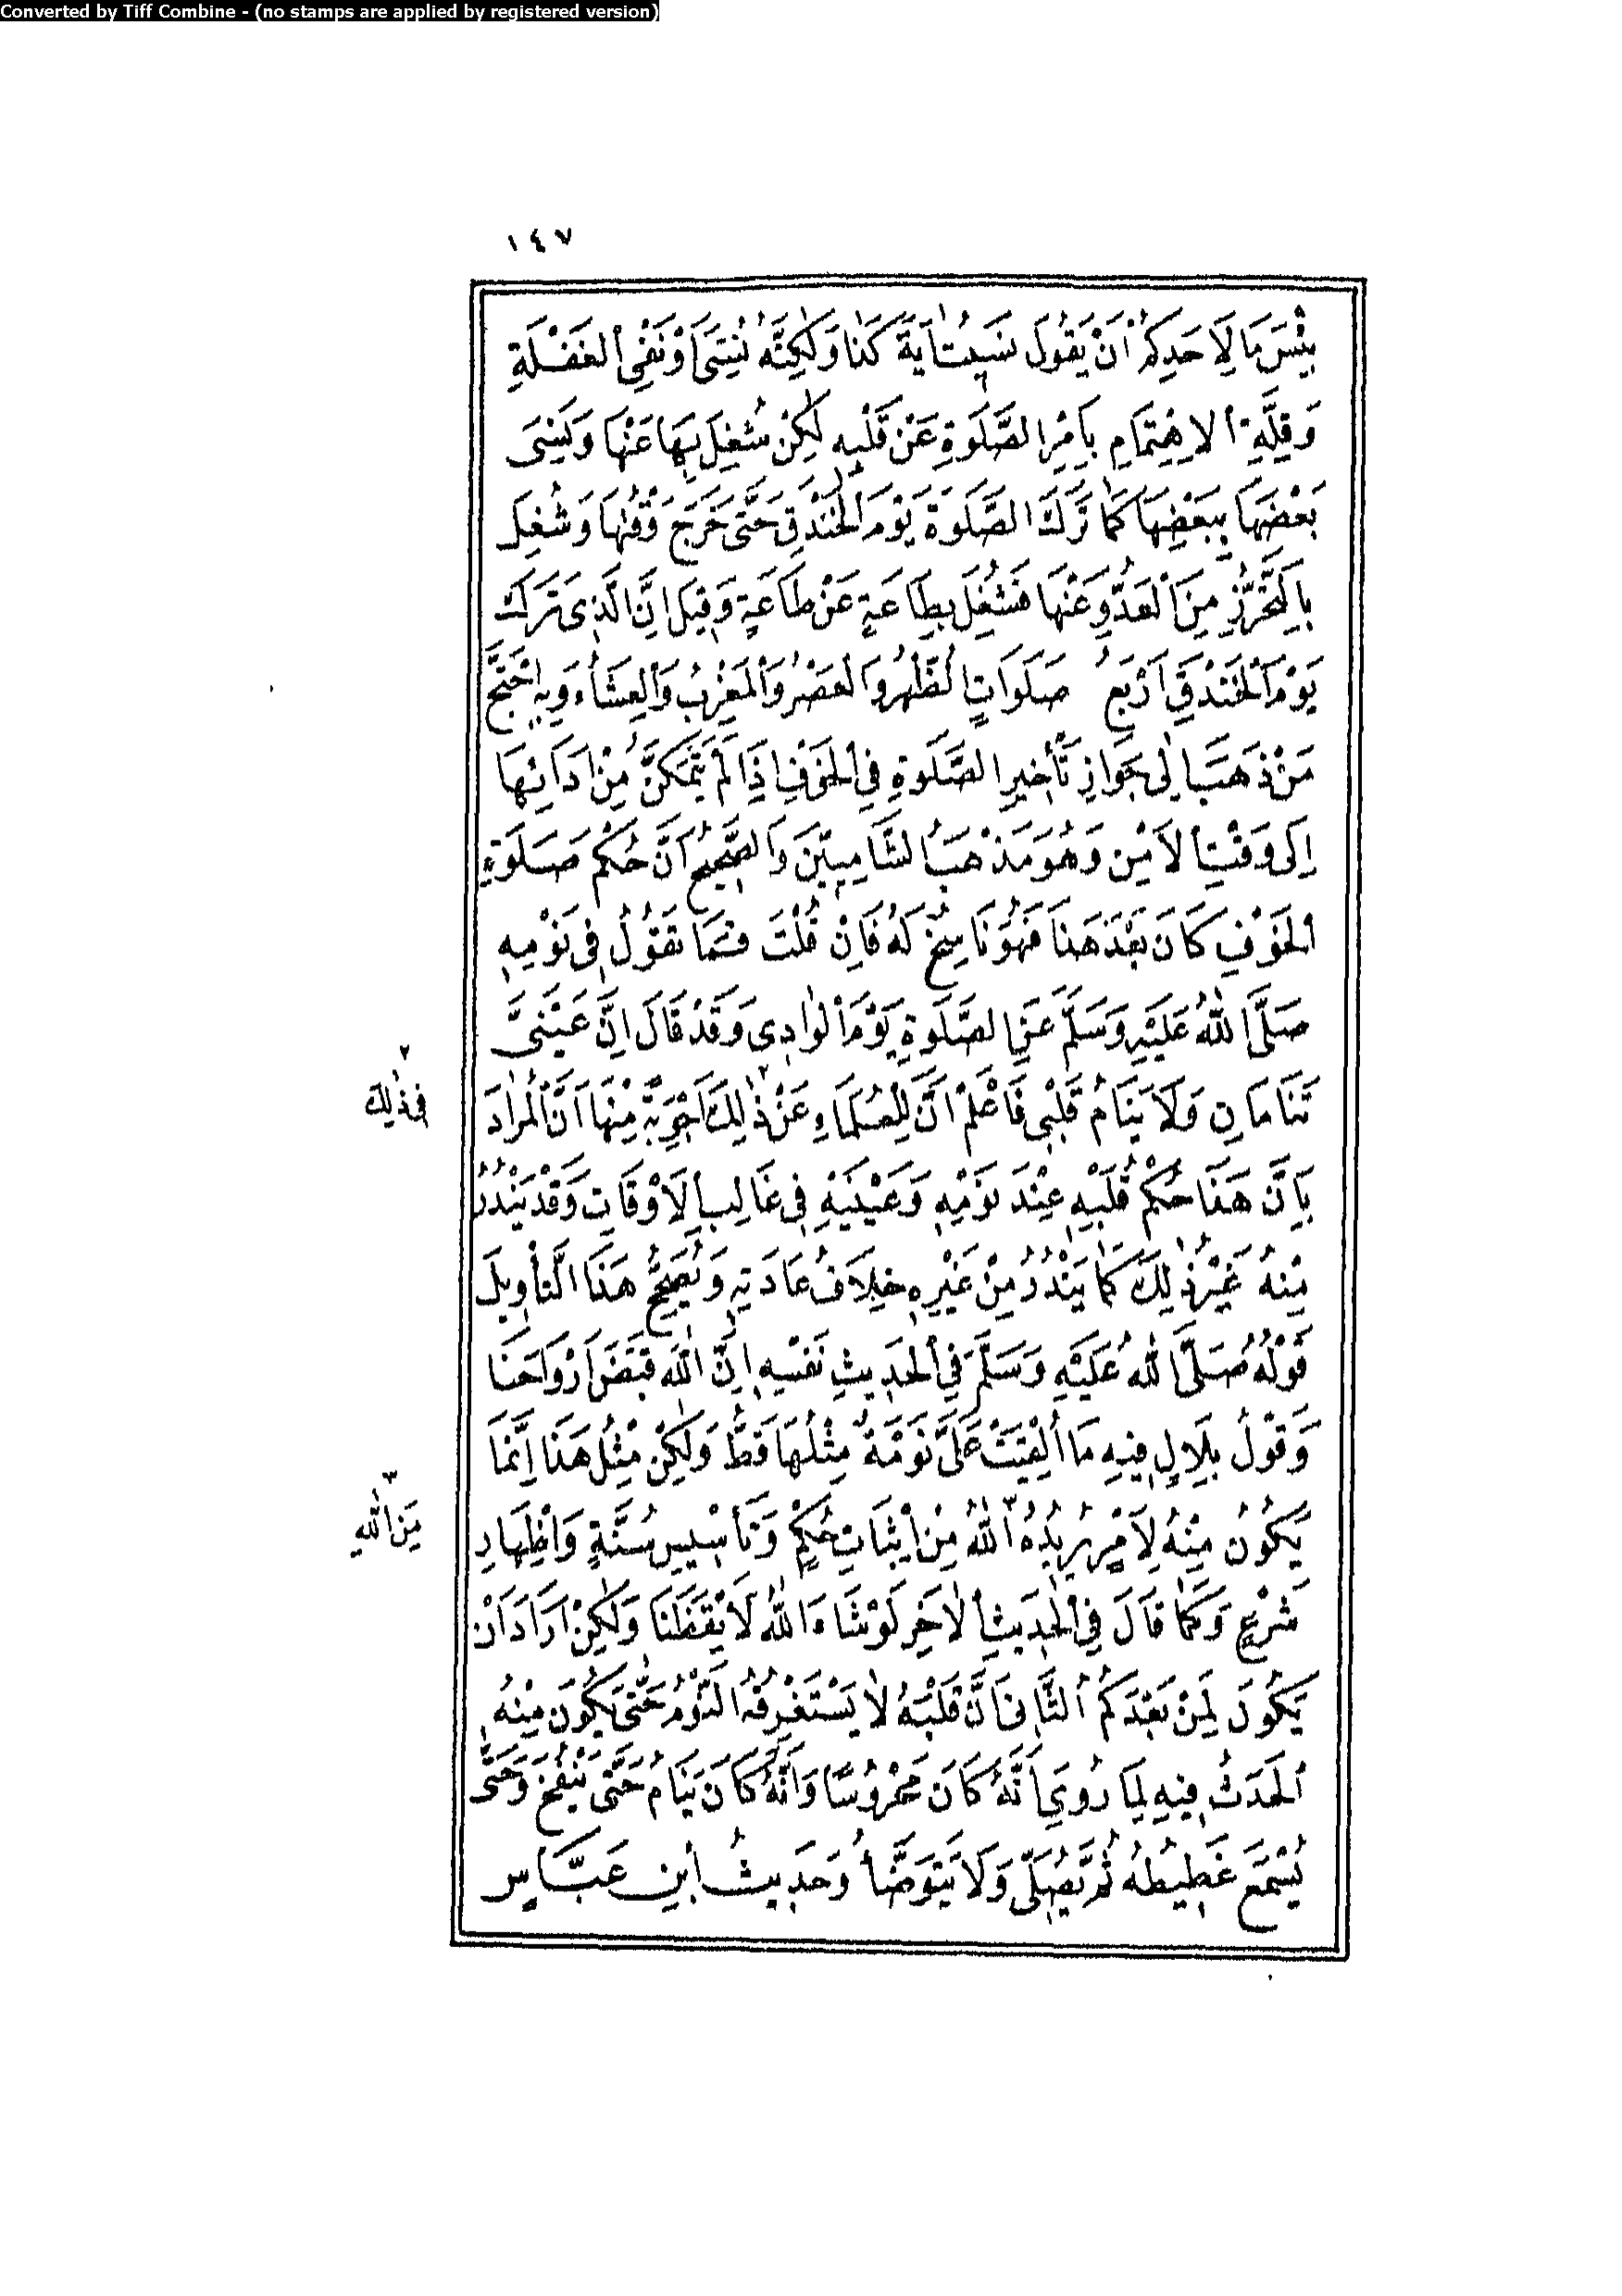 Converted by Tiff Combine - (no stamps are applied by registered version)
١٤٧
بِئْسَ مَا لِاَحَدِكُمْ اَنْ يَقُولَ نَسِيتُ اٰيَةَ كَذَا وَلٰكِنَّهُ نُسِّىَ اَوْ نَفْىِ الْغَفْلَةِ
وَقِلَّةِ الْاِهْتِمَامِ بِاَمْرِ الصَّلَوةِ عَنْ قَلْبِهِ لٰكِنْ شُغِلَ بِهَا عَنْهَا وَنَسِىَ
بَعْضَهَا بِبَعْضِهَا كَمَا تَرَكَ الصَّلَوةَ يَوْمَ الْخَنْدَقِ حَتّٰى خَرَجَ وَقْتُهَا وَشُغِلَ
بِالتَّحَرُّزِ مِنَ الْعَدُوِّ عَنْهَا فَشُغِلَ بِطَاعَةٍ عَنْ طَاعَةٍ وَقِيلَ اِنَّ الَّذِى تَرَكَ
يَوْمَ الْخَنْدَقِ اَرْبَعُ صَلَوَاتٍ الظُّهْرُ وَالْعَصْرُ وَالْمَغْرِبُ وَالْعِشَاءُ وَبِهِ احْتَجَّ
مَنْ ذَهَبَ اِلٰى جَوَازِ تَأْخِيرِ الصَّلَوةِ فِى الْخَوْفِ اِذَا لَمْ يَتَمَكَّنْ مِنْ اَدَائِهَا
اِلٰى وَقْتِ الْاَمْنِ وَهُوَ مَذْهَبُ الشَّامِيِّينَ وَالصَّحِيحُ اَنَّ حُكْمَ صَلَوةِ
الْخَوْفِ كَانَ بَعْدَ هَذَا فَهُوَ نَاسِخٌ لَهُ فَاِنْ قُلْتَ فَمَا تَقُولُ فِى نَوْمِهِ
صَلَّى اللّٰهُ عَلَيْهِ وَسَلَّمَ عَنِ الصَّلَوةِ يَوْمَ الْوَادِى وَقَدْ قَالَ اِنَّ عَيْنَىَّ
تَنَامَانِ وَلَا يَنَامُ قَلْبِى فَاعْلَمْ اَنَّ لِلْعُلَمَاءِ عَنْ ذٰلِكَ ٢ اَجْوِبَةً مِنْهَا اَنَّ الْمُرَادَ
٢
فِى ذٰلِكَ
بِاَنَّ هَذَا حُكْمُ قَلْبِهِ عِنْدَ نَوْمِهِ وَعَيْنَيْهِ فِى غَالِبِ الْاَوْقَاتِ وَقَدْ يَنْدُرُ
مِنْهُ غَيْرُ ذٰلِكَ كَمَا يَنْدُرُ مِنْ غَيْرِهِ خِلَافُ عَادَتِهِ وَيُصَحِّحُ هَذَا التَّأْوِيلَ
قَوْلُهُ صَلَّى اللّٰهُ عَلَيْهِ وَسَلَّمَ فِى الْحَدِيثِ نَفْسِهِ اِنَّ اللّٰهَ قَبَضَ اَرْوَاحَنَا
وَقَوْلُ بِلَالٍ فِيهِ مَا اُلْقِيَتْ عَلَىَّ نَوْمَةٌ مِثْلُهَا قَطُّ وَلٰكِنْ مِثْلُ هَذَا اِنَّمَا
يَكُونُ مِنْهُ لِاَمْرٍ يُرِيدُهُ اللّٰهُ ٣ مِنْ اِثْبَاتِ حُكْمٍ وَتَأْسِيسِ سُنَّةٍ وَاِظْهَارِ
٣
مِنَ اللّٰهِ
شَرْعٍ وَكَمَا قَالَ فِى الْحَدِيثِ الْاٰخَرِ لَوْ شَاءَ اللّٰهُ لَاَيْقَظَنَا وَلٰكِنْ اَرَادَ اَنْ
يَكُونَ لِمَنْ بَعْدَكُمْ الثَّانِى اَنَّ قَلْبَهُ لَا يَسْتَغْرِقُهُ النَّوْمُ حَتّٰى يَكُونَ مِنْهُ
الْحَدَثُ فِيهِ لِمَا رُوِىَ اَنَّهُ كَانَ مَحْرُوسًا وَاَنَّهُ كَانَ يَنَامُ حَتّٰى يَنْفُخَ وَحَتّٰى
يُسْمَعَ غَطِيطُهُ ثُمَّ يُصَلِّى وَلَا يَتَوَضَّأُ وَحَدِيثُ ابْنِ عَبَّاسٍ